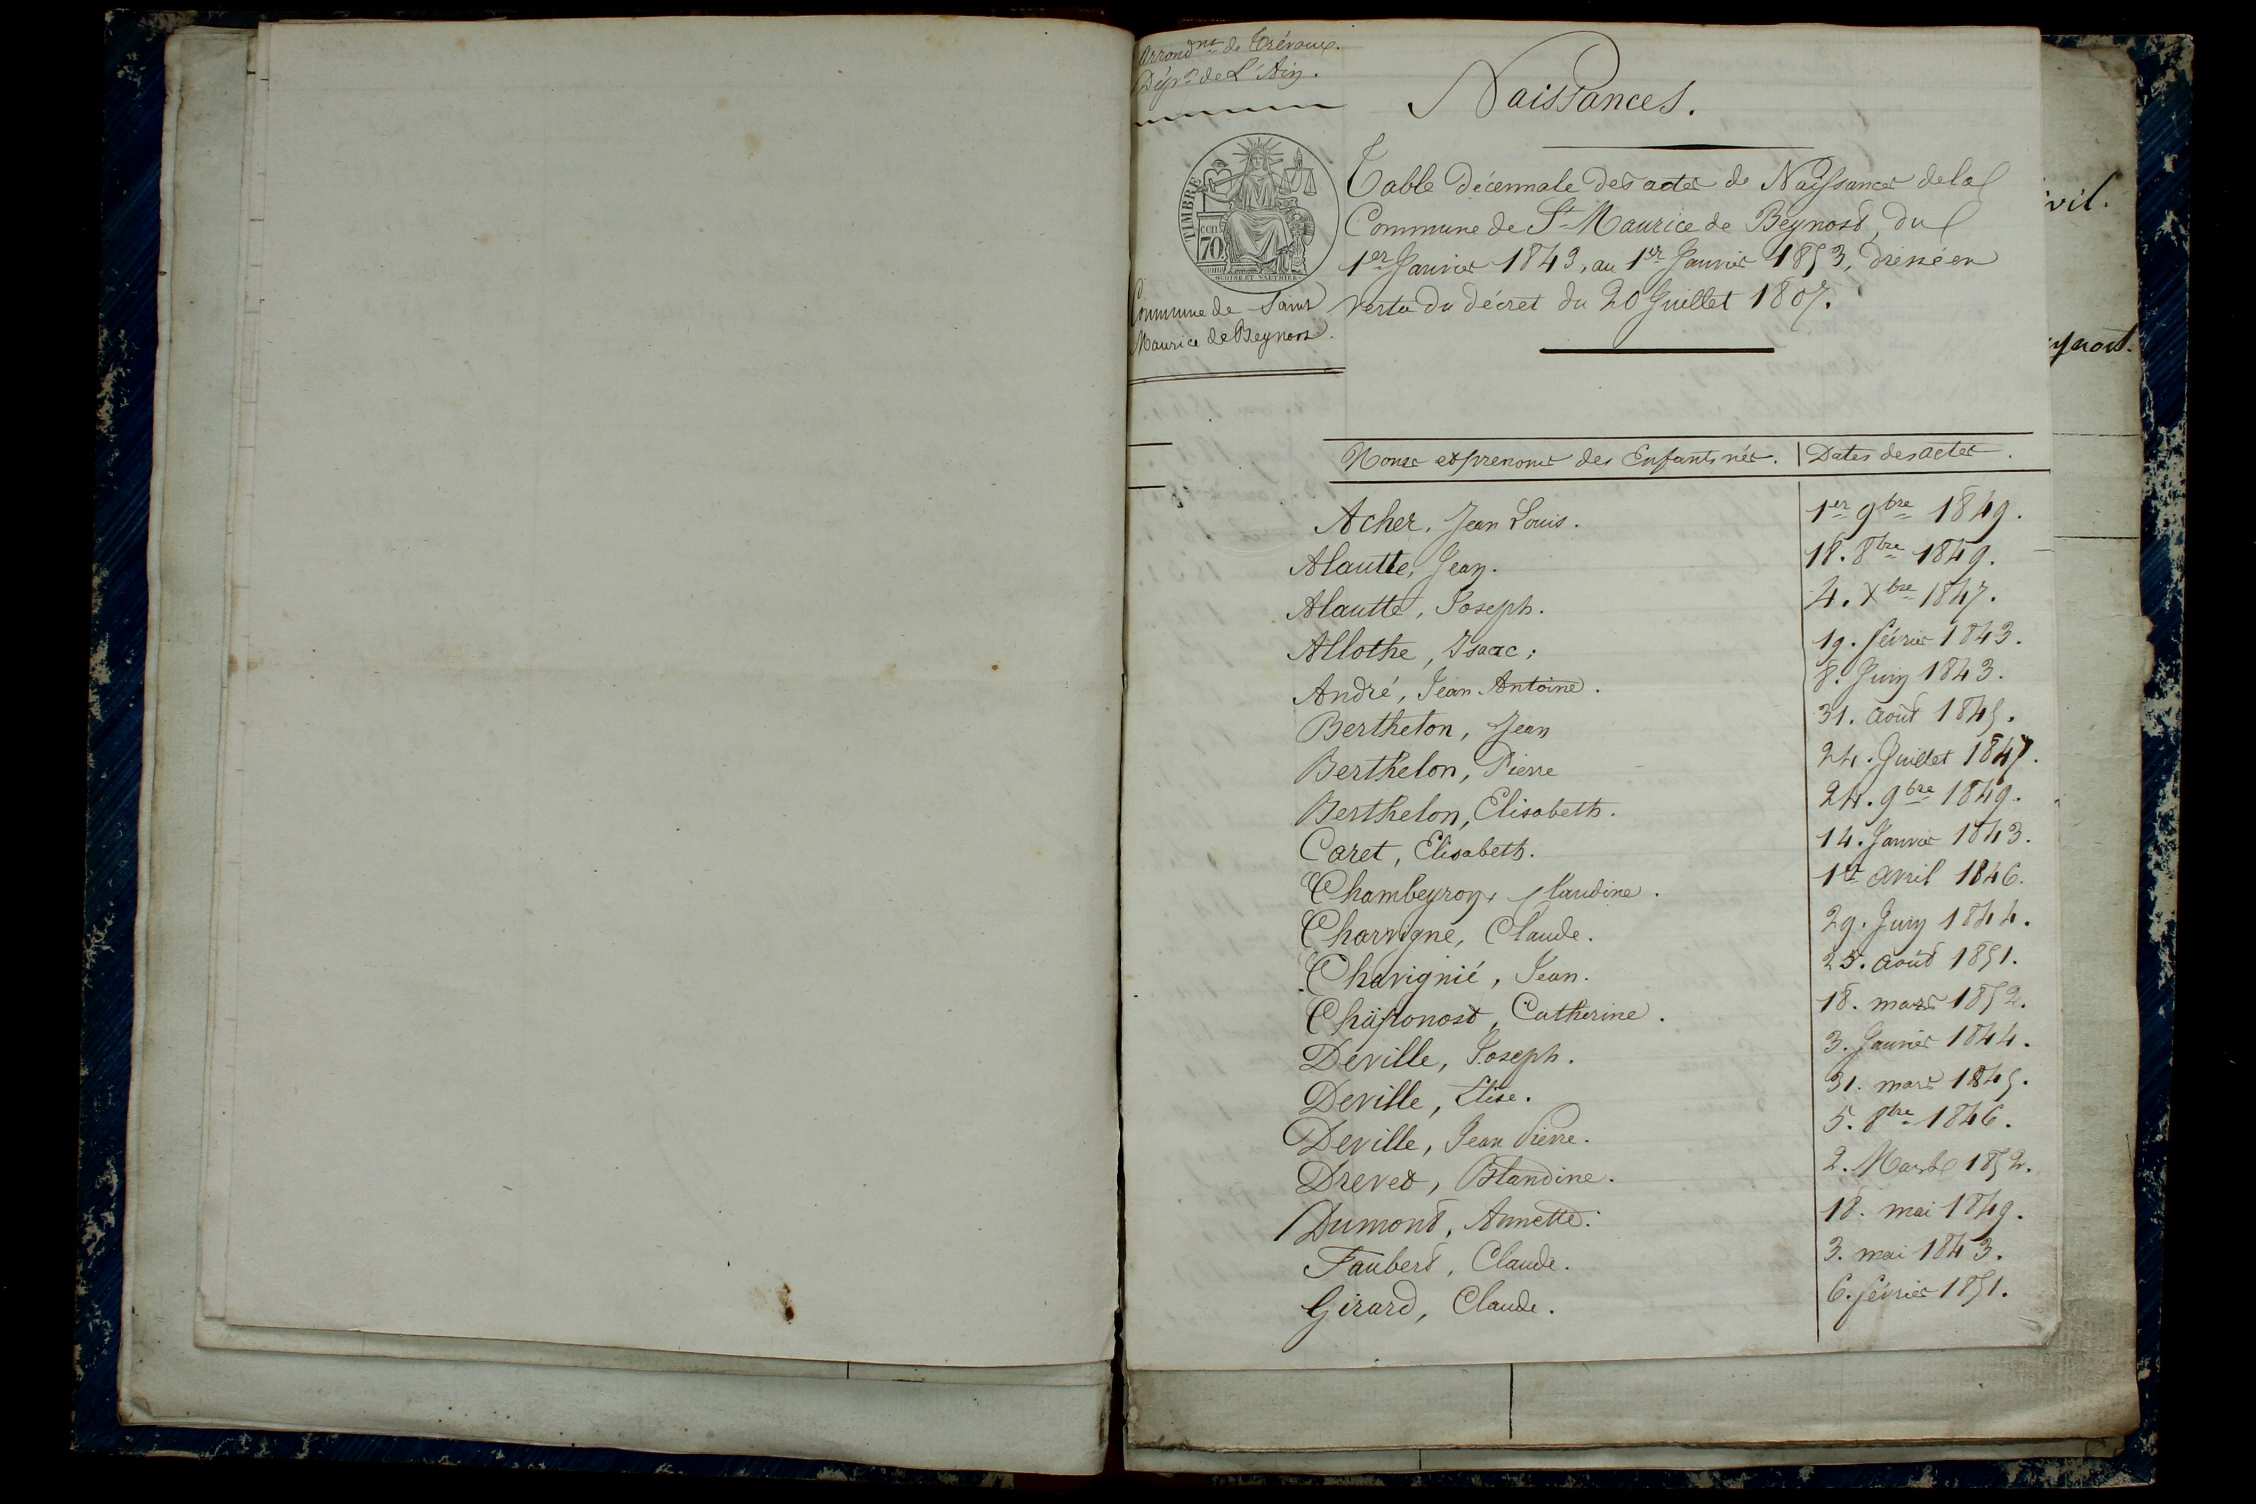 Arrond.nt de Trévoux.
Dép.t de L'Ain.
Naissances.
TIMBRE
70
cen.
Commune de Saint
Maurice de Beynost.
Table décennale des actes de Naissances de la
Commune de St Maurice de Beynost, du
1er Janvier 1843, au 1er Janvier 1853, dressé en
vertu du décret du 20 Juillet 1807.
ivil.
ynost.
Noms et prenoms des Enfants nés. Dates des actes.
Acher, Jean Louis. 1er 9bre 1849.
Alautte, Jean. 18. 8bre 1849.
Alautte, Joseph. 4. Xbre 1847.
Allothe, Isaac; 19. février 1843.
André, Jean Antoine. 8. Juin 1843.
Berthelon, Jean 31. août 1845.
Berthelon, Pierre 24. Juillet 1847.
Berthelon, Elisabeth. 24. 9bre 1849.
Caret, Elisabeth. 14. Janvier 1843.
Chambeyron, Claudine. 1er avril 1846.
Charvigné, Claude. 29. Juin 1844.
Chavignié, Jean. 25. août 1851.
Chaponost, Catherine. 18. mars 1852.
Deville, Joseph. 3. Janvier 1844.
Deville, Elise. 31. mars 1845.
Deville, Jean Pierre. 5. 8bre 1846.
Drevet, Blandine. 2. Mars 1852.
Dumont, Annette. 18. mai 1849.
Faubert, Claude. 3. mai 1843.
Girard, Claude. 6. février 1851.